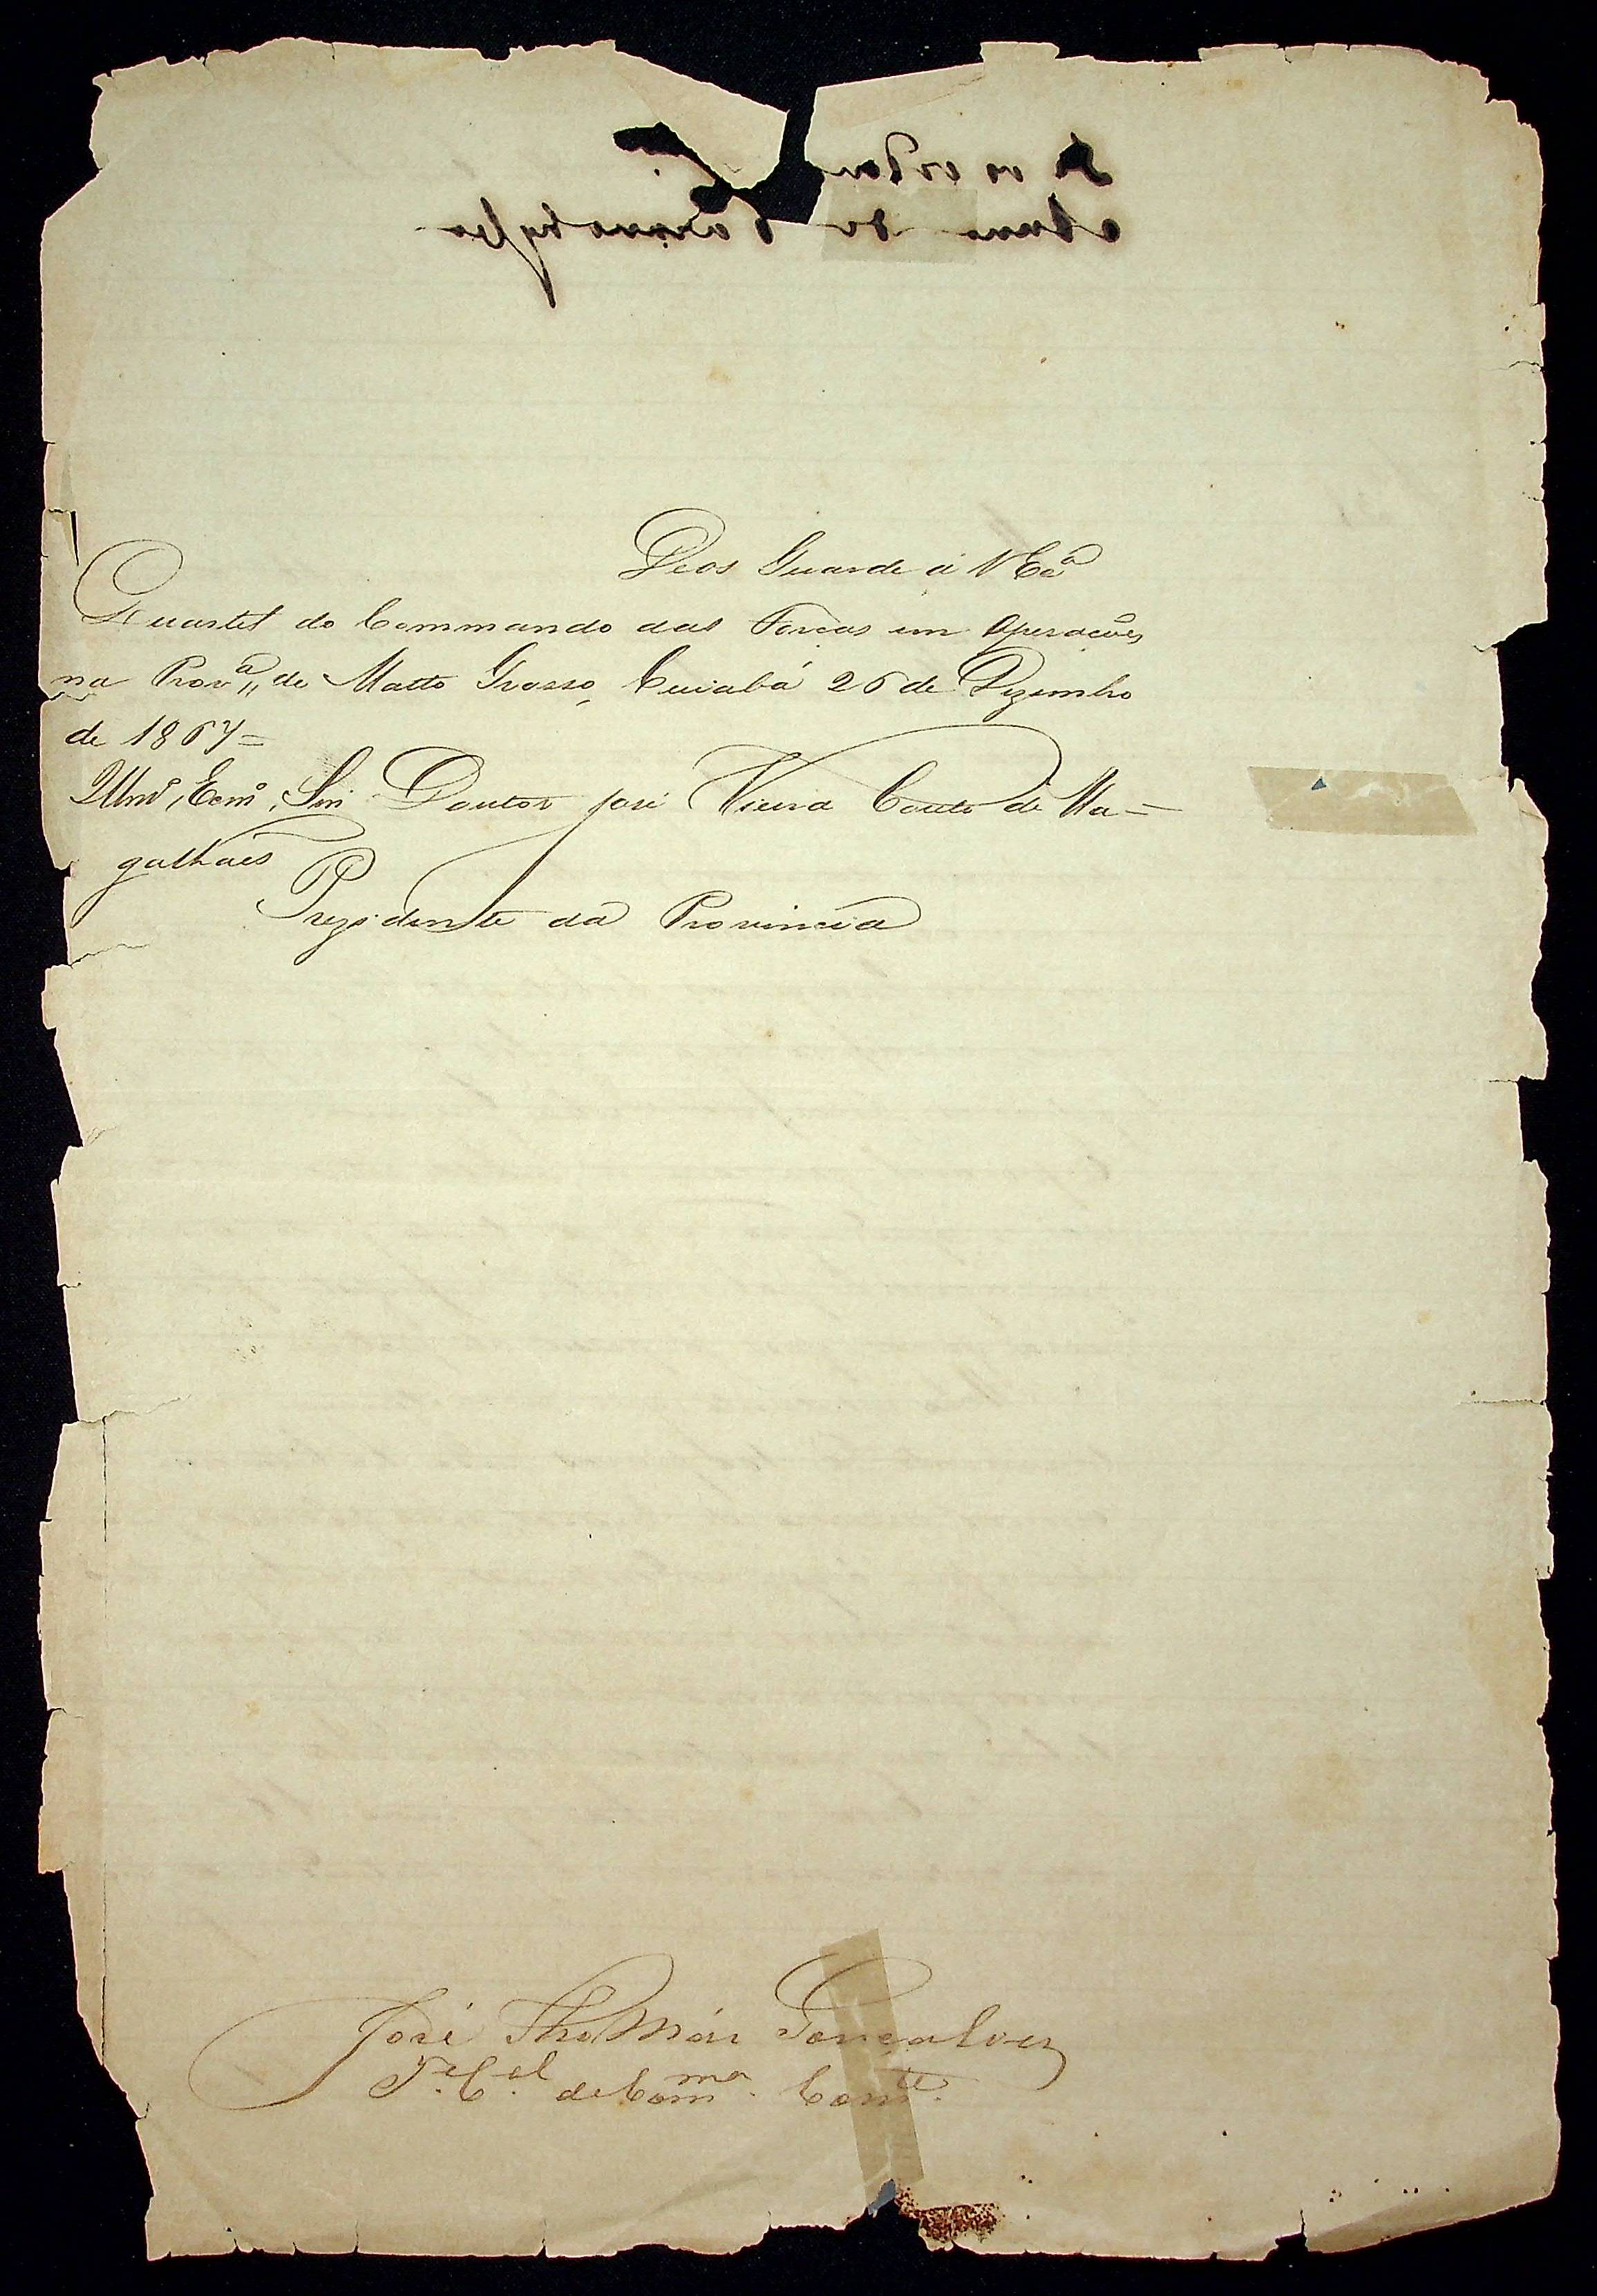 Deos Guarde á V Ecª
Quartel do Commando das Forcas em Operacões
na Provª,, de Matto Grosso, Cuiabá 26 de Dezembro
de 1867=
Illmº, Ecmº, Snr Doutor José Vieira Couto de Ma=
galhaes
Prezidente da Provincia
José Thomás Gonçalves
Te. Cel. de Comma. Comte.